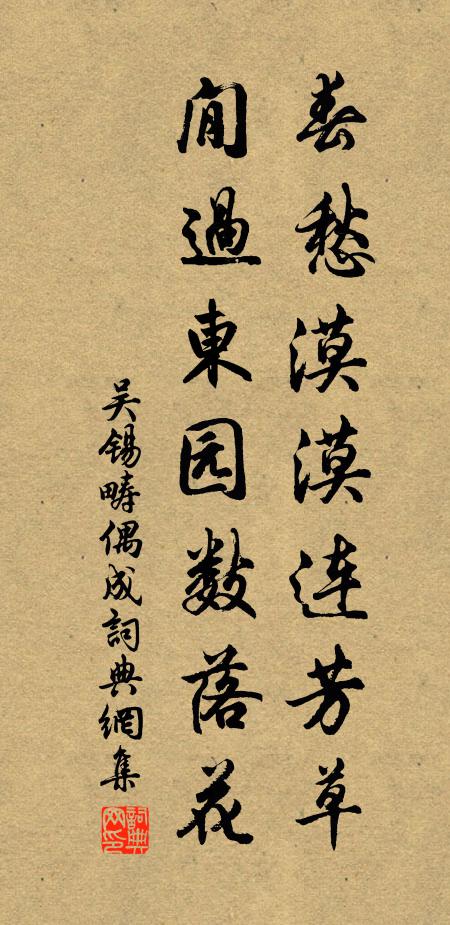 春愁漠漠连芳草
閒過東园数落花
吴锡畴偶成詞典網集
詞典网印